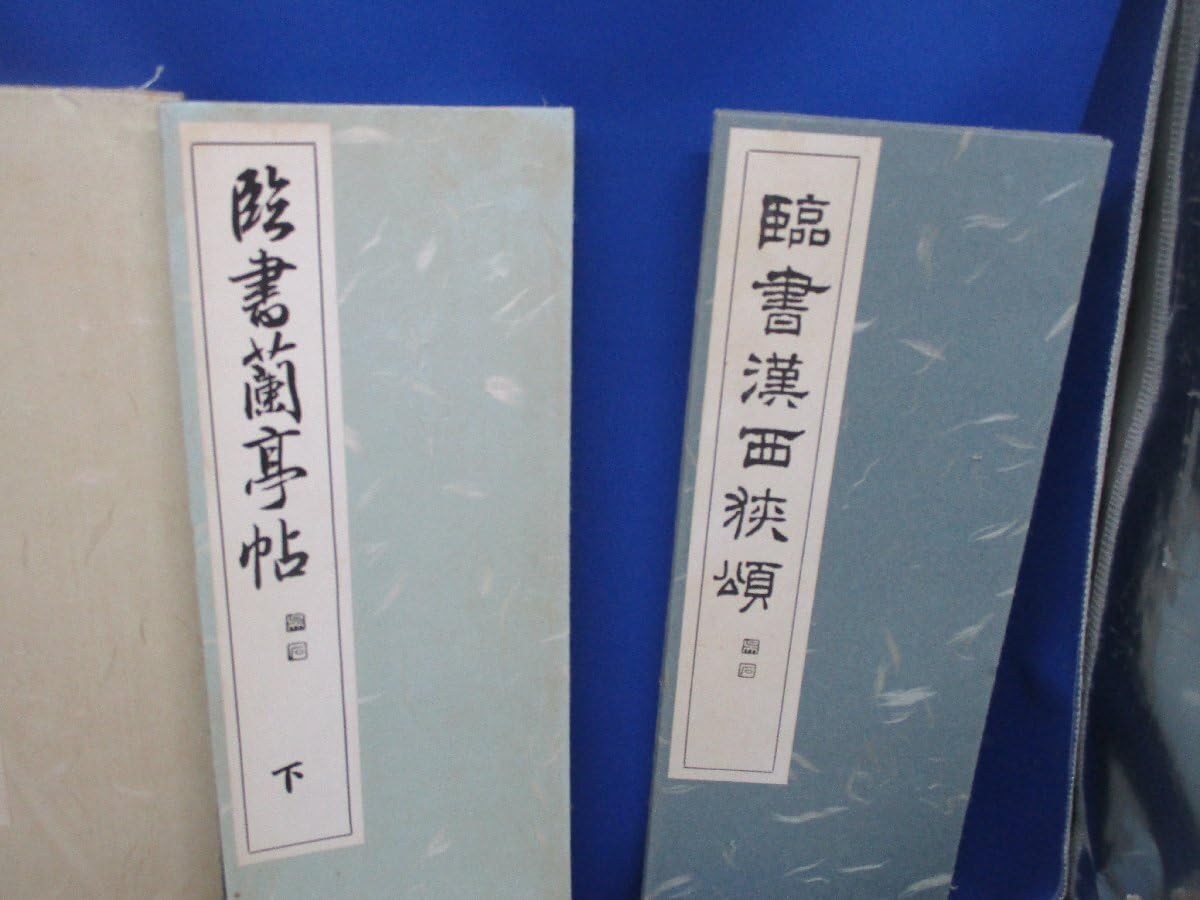 臨書蘭亭帖
下
臨書漢西狹頌